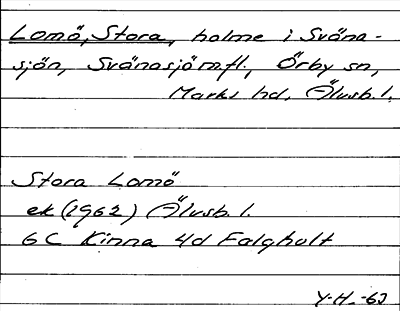 Lomö, Stora, holme i Sväna-
sjön, Svänasjö m.fl., Örby sn,
Marks hd, Älvsb. l.
Stora Lomö
ek (1962) Älvsb. l.
6C Kinna 4d Falghult
Y.H. -63